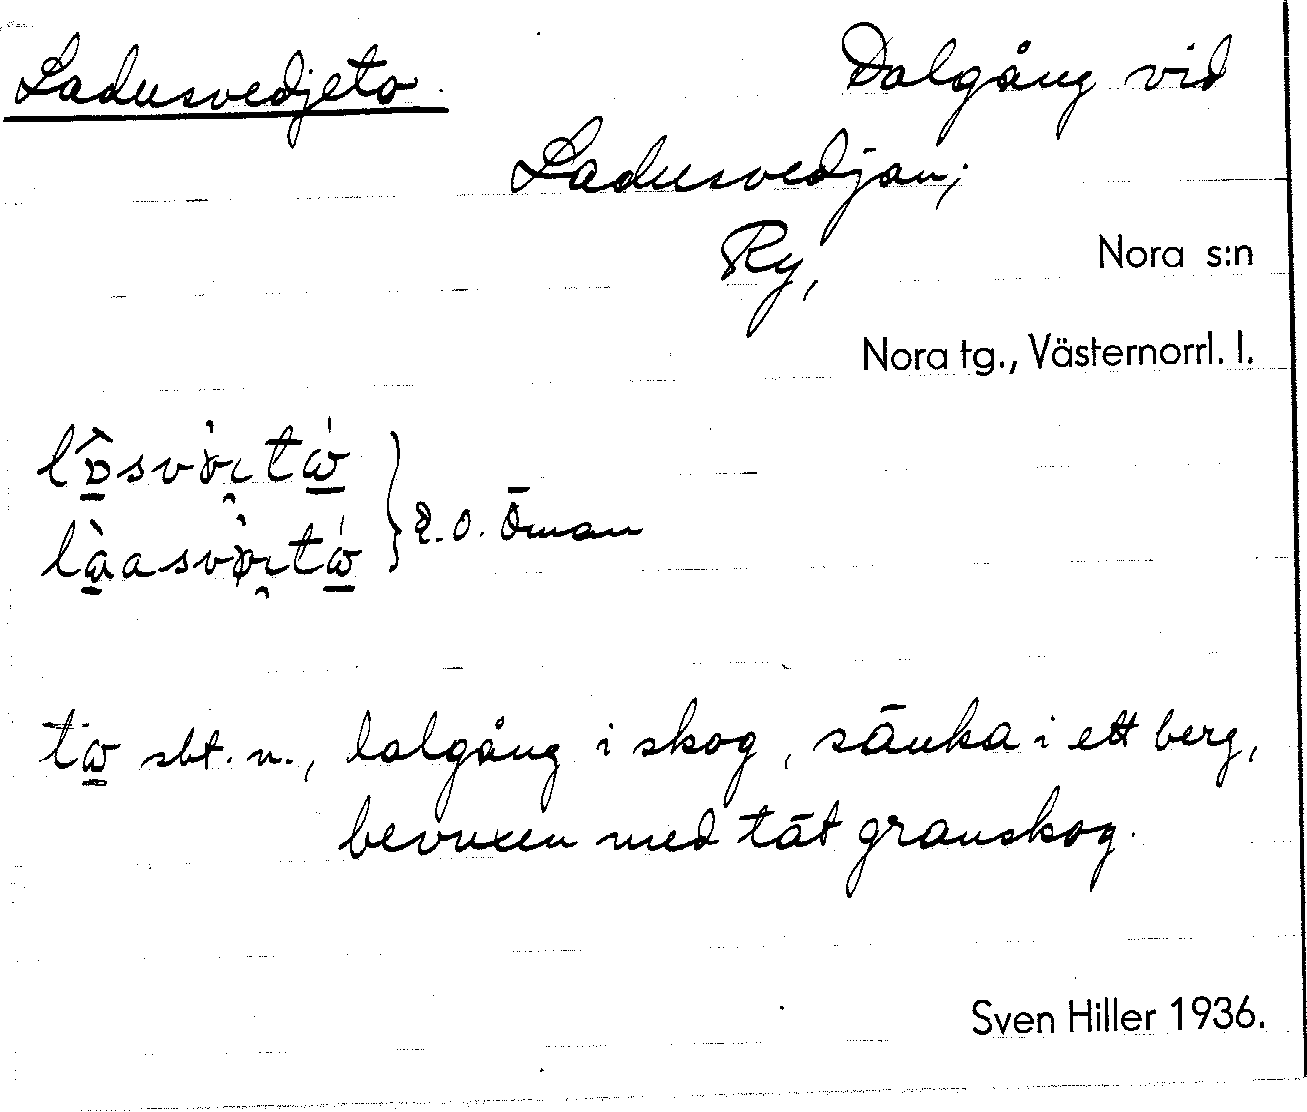 Ladusvedjeto. Dalgång vid
Ladusvedjan;
Ry, Nora s:n
Nora tg., Västernorrl. l.
Öman
sbt. n., lalgång i skog, sänka i ett berg,
bevuxen med tät granskog.
Sven Hiller 1936.